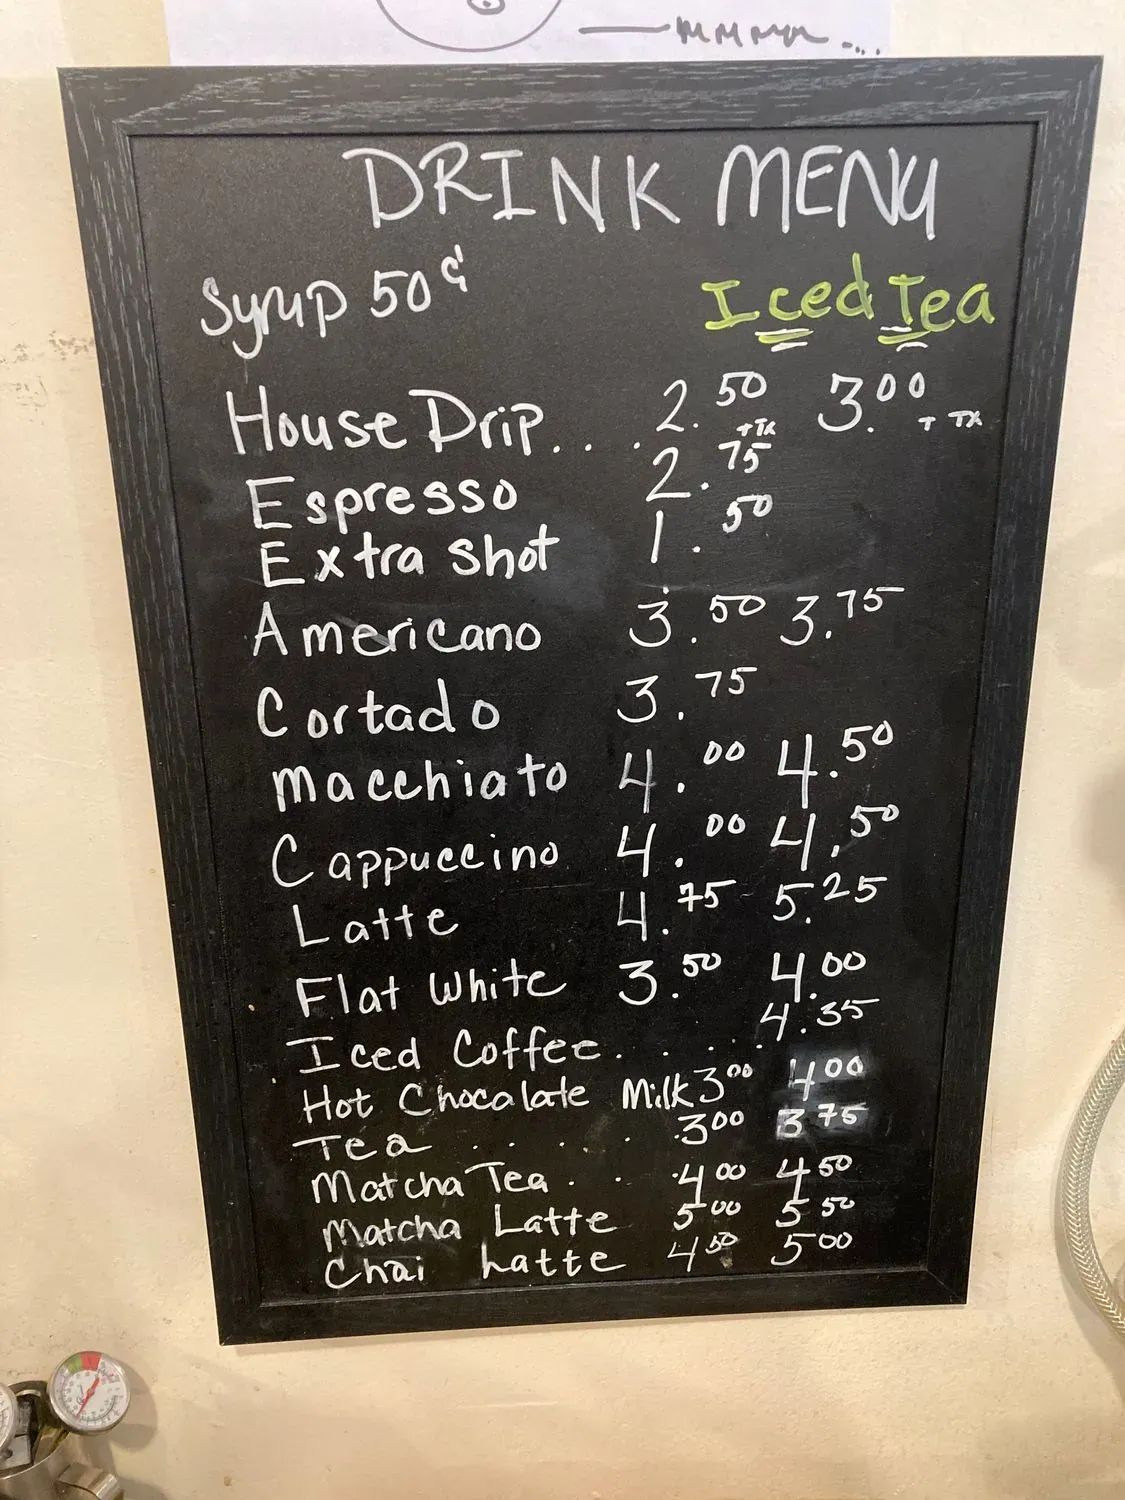 mmmm....
DRINK MENU
Syrup 50¢
Iced Tea
House Drip... . 2.50 + TX 3.00 + TX
Espresso 2.75
Extra Shot 1.50
Americano 3.50 3.75
Cortado 3.75
Macchiato 4.00 4.50
Cappuccino 4.00 4.50
Latte 4.75 5.25
Flat White 3.50 4.00
Iced Coffee. . . . . 4.35
Hot Chocalate Milk 3.00 4.00
Tea . . . . . 3.00 3.75
Matcha Tea . . . 4.00 4.50
Matcha Latte 5.00 5.50
Chai Latte 4.50 5.00